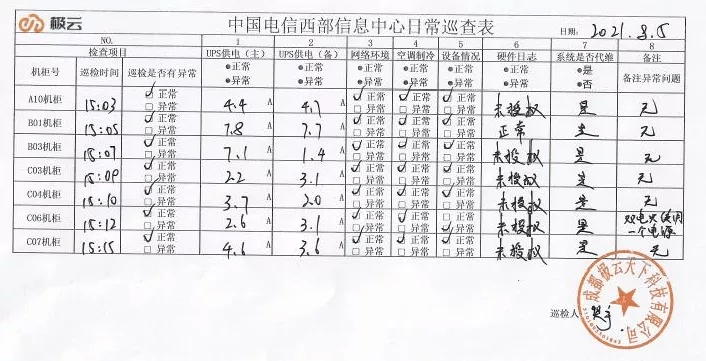 极云
中国电信西部信息中心日常巡查表
日期: 2021.8.5
NO. 1 2 3 4 5 6 7 8
检查项目 UPS供电（主） UPS供电（备） 网络环境 空调制冷 设备情况 硬件日志 系统是否代维 备注
机柜号 巡检时间 巡检是否有异常 ●正常 ●正常 ●正常 ●正常 ●正常 ●正常 ●是 备注异常问题
●异常 ●异常 ●异常 ●异常 ●异常 ●异常 ●否
A10机柜 15:03 ☑正常 □异常 4.4 A 4.7 A ☑正常 □异常 ☑正常 □异常 ☑正常 □异常 未授权 是 无
B01机柜 15:05 ☑正常 □异常 7.8 A 7.7 A ☑正常 □异常 ☑正常 □异常 ☑正常 □异常 正常 是 无
B03机柜 15:07 ☑正常 □异常 7.1 A 1.4 A ☑正常 □异常 ☑正常 □异常 ☑正常 □异常 未授权 是 无
C03机柜 15:09 ☑正常 □异常 2.2 A 3.1 A ☑正常 □异常 ☑正常 □异常 ☑正常 □异常 未授权 是 无
C04机柜 15:10 ☑正常 □异常 3.7 A 2.0 A ☑正常 □异常 ☑正常 □异常 ☑正常 □异常 未授权 是 无
C06机柜 15:12 ☑正常 □异常 2.6 A 3.1 A ☑正常 □异常 ☑正常 □异常 □正常 ☑异常 未授权 是 双电只使用一个电源
C07机柜 15:15 ☑正常 □异常 4.6 A 3.6 A ☑正常 □异常 ☑正常 □异常 ☑正常 □异常 未授权 是 无
成都极云天下科技有限公司
巡检人: